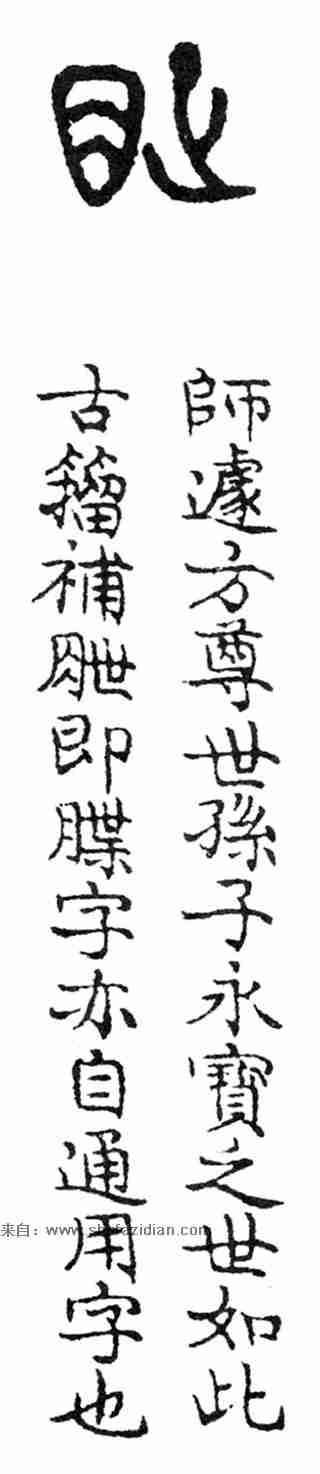 師遽方尊世孫子永寶之世如此
古籀補䏿即牒字亦自通用字也
来自：www.shufazidian.com